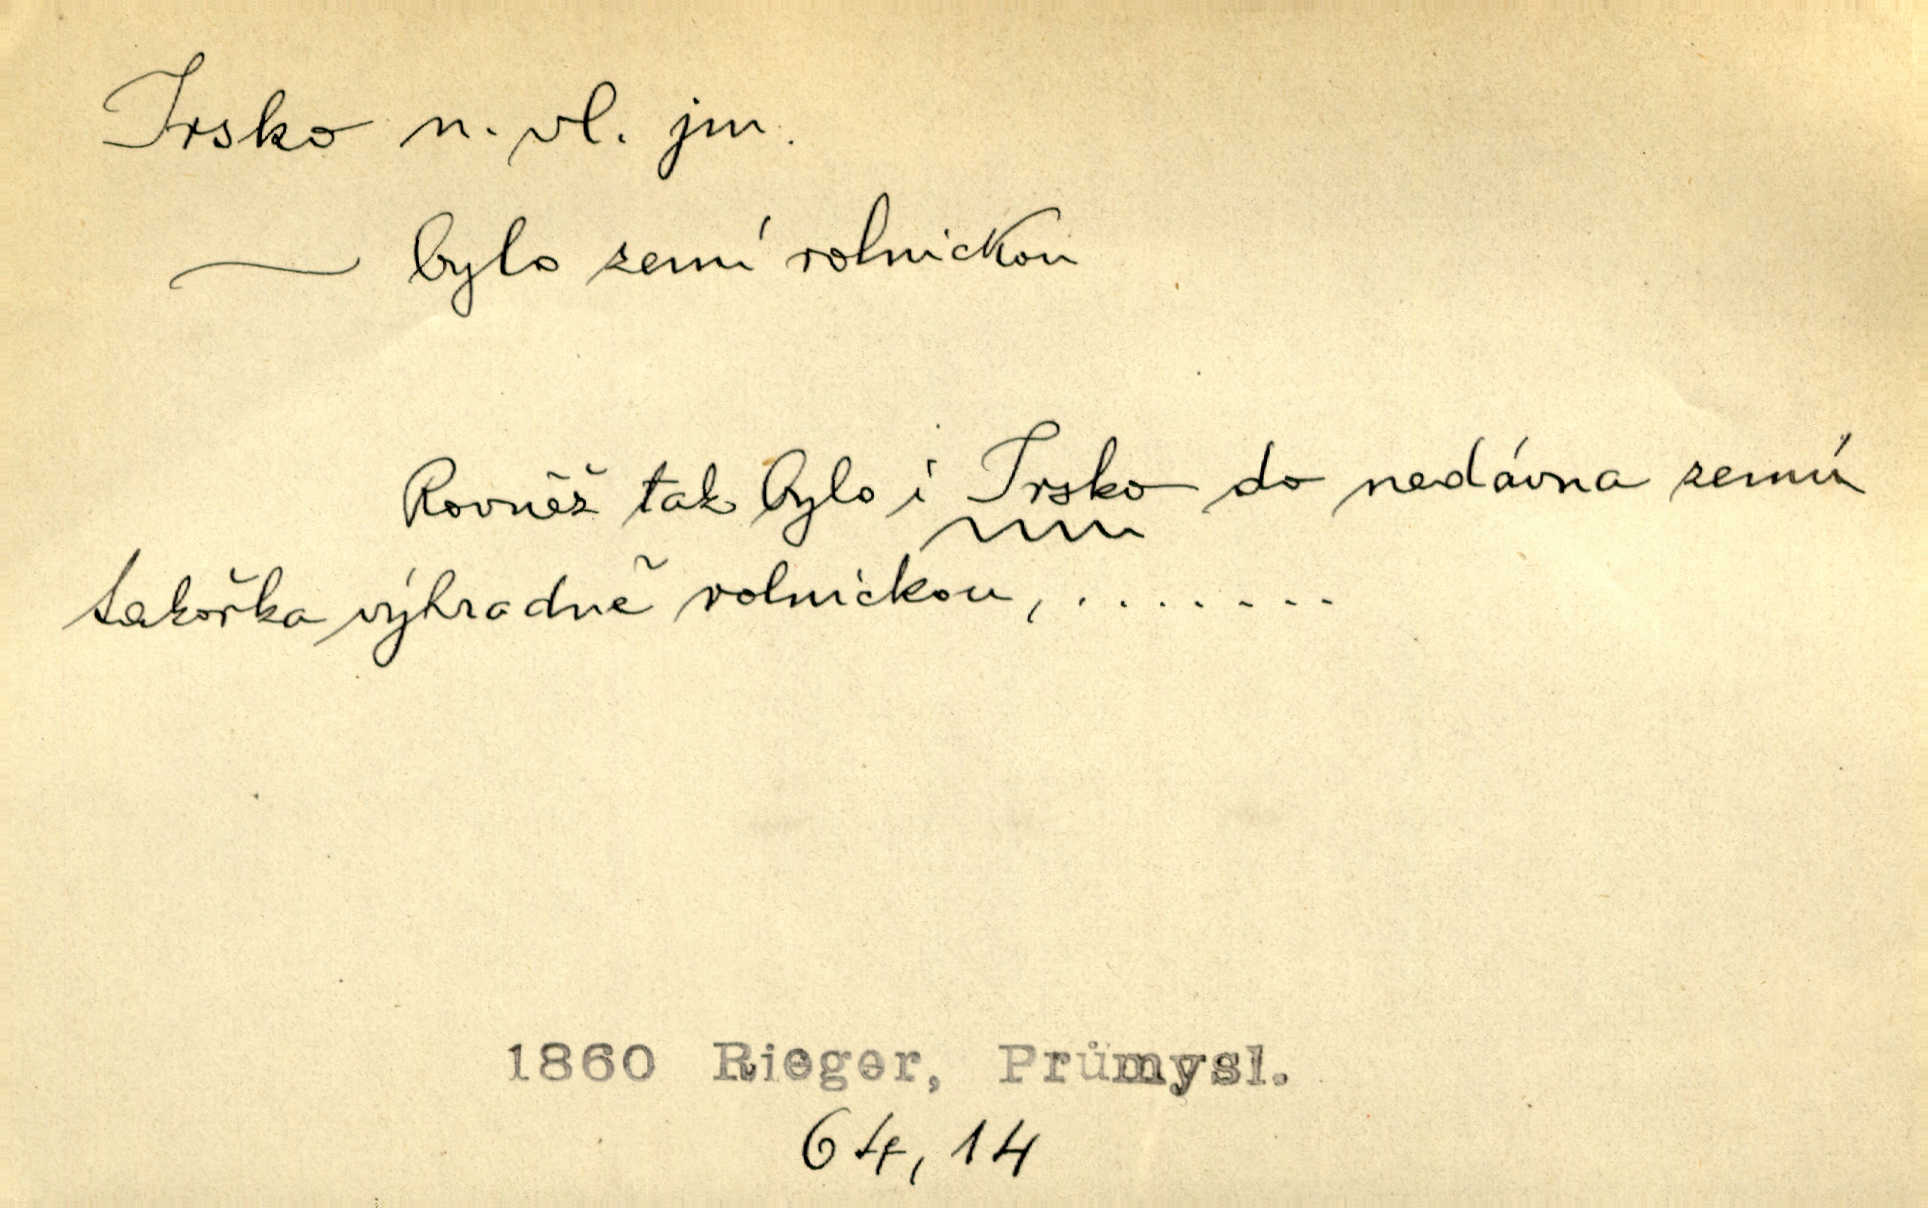 Irsko n. vl. jm.
— bylo zemí rolnickou
Rovněž tak bylo i Irsko do nedávna zemí
takořka výhradně rolnickou, . . . . . . .
1860 Rieger, Průmysl.
64,14